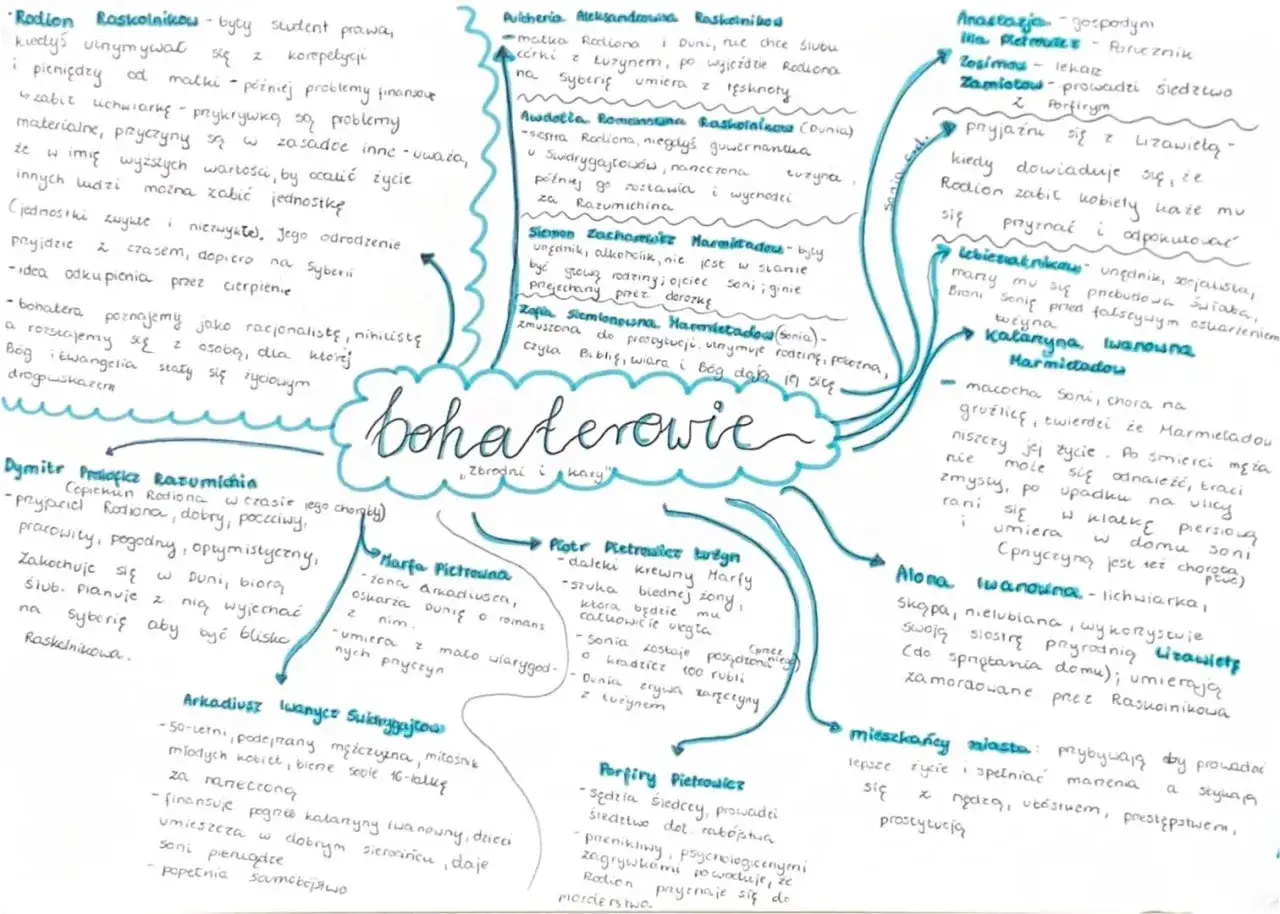 Rodion Raskolnikow - były student prawa,
kiedyś utrzymywał się z korepetycji
i pieniędzy od matki - później problemy finansowe
zabił lichwiarkę - przykrywką są problemy
materialne, przyczyny są w zasadzie inne - uważa,
że w imię wyższych wartości, by ocalić życie
innych ludzi można zabić jednostkę
(jednostki zwykłe i niezwykłe). Jego odrodzenie
przyjdzie z czasem, dopiero na Syberii
- idea odkupienia przez cierpienie
- bohatera poznajemy jako racjonalistę, nihilistę
a rozstajemy się z osobą, dla której
Bóg i Ewangelia stały się życiowym
drogowskazem
Pulcheria Aleksandrowna Raskolnikow
- matka Rodiona i Duni, nie chce ślubu
córki z Łużynem, po wyjeździe Rodiona
na Syberię umiera z tęsknoty
Awdotia Romanowna Raskolnikow (Dunia)
- siostra Rodiona, niegdyś guwernantka
u Swidrygajłowów, narzeczona Łużyna,
później go zostawia i wychodzi
za Razumichina
Siemion Zacharewicz Marmieładow - były
urzędnik, alkoholik, nie jest w stanie
być głową rodziny; ojciec Soni; ginie
przejechany przez dorożkę
Zofia Siemionowna Marmieładow (Sonia) -
zmuszona do prostytucji, utrzymuje rodzinę, pobożna,
czyta Biblię, wiara i Bóg dają jej siłę
Sonia c.d.
Anastazja - gospodyni
Ilia Pietrowicz - Porucznik
Zosimow - lekarz
Zamiotow - prowadzi śledztwo
z Porfirym
przyjaźni się z Lizawietą -
kiedy dowiaduje się, że
Rodion zabił kobiety każe mu
się przyznać i odpokutować
Lebieziatnikow - urzędnik, socjalista,
marzy mu się przebudowa świata,
Broni Sonię przed fałszywym oskarżeniem
Łużyna
Katarzyna Iwanowna
Marmieładow
- macocha Soni, chora na
gruźlicę, twierdzi że Marmieładow
niszczy jej życie. Po śmierci męża
nie może się odnaleźć, traci
zmysły, po upadku na ulicy
rani się w klatkę piersiową
i umiera w domu Soni
(przyczyną jest też choroba
płuc)
bohaterowie
"Zbrodni i kary"
Dymitr Prokofcz Razumichin
(opiekun Rodiona w czasie jego choroby)
- przyjaciel Rodiona, dobry, poczciwy,
pracowity, pogodny, optymistyczny,
Zakochuje się w Duni, biorą
ślub. Planuje z nią wyjechać
na Syberię aby być blisko
Raskolnikowa.
Marfa Pietrowna
- żona Arkadiusza,
oskarża Dunię o romans
z nim.
- umiera z mało wiarygod-
nych przyczyn
Arkadiusz Iwanycz Swidrygajłow
- 50-letni, podejrzany mężczyzna, miłośnik
młodych kobiet, bierze sobie 16-latkę
za narzeczoną
- finansuje pogrzeb Katarzyny Iwanowny, dzieci
umieszcza w dobrym sierocińcu, daje
Soni pieniądze
- popełnia samobójstwo
Piotr Pietrowicz Łużyn
- daleki krewny Marfy
- szuka biednej żony,
która będzie mu
całkowicie uległa
- Sonia zostaje posądzona (przez niego)
o kradzież 100 rubli
- Dunia zrywa zaręczyny
z Łużynem
Porfiry Pietrowicz
- sędzia śledczy, prowadzi
śledztwo dot. zabójstwa
- przenikliwy, psychologicznymi
zagrywkami powoduje, że
Rodion przyznaje się do
morderstwa.
Alona Iwanowna - lichwiarka,
skąpa, nielubiana, wykorzystuje
swoją siostrę przyrodnią Lizawietę
(do sprzątania domu); umierają
zamordowane przez Raskolnikowa
mieszkańcy miasta: przybywają aby prowadzić
lepsze życie i spełniać marzenia a stykają
się z nędzą, ubóstwem, przestępstwem,
prostytucją